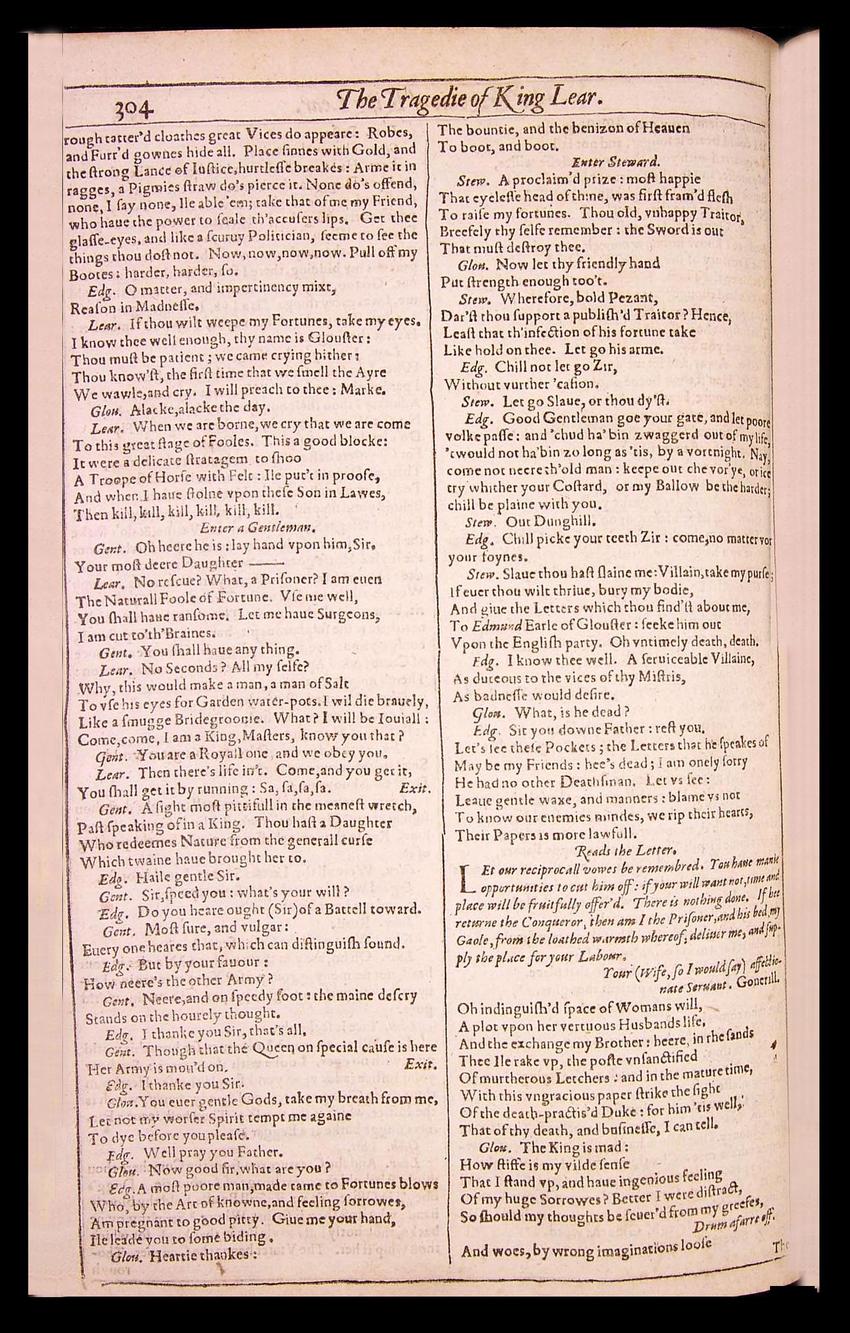 304
The Tragedie of King Lear.
rough tatter'd cloathes great Vices do appeare: Robes,
and Furr'd gownes hide all. Place sinnes with Gold, and
the strong Lance of Iustice, hurtlesse breakes: Arme it in
ragges, a Pigmies straw do's pierce it. None do's offend,
none, I say none, Ile able 'em; take that of me my Friend,
who haue the power to seale th'accusers lips. Get thee
glasse-eyes, and like a scuruy Politician, seeme to see the
things thou dost not. Now, now, now, now. Pull off my
Bootes: harder, harder, so.
Edg. O matter, and impertinency mixt,
Reason in Madnesse.
Lear. If thou wilt weepe my Fortunes, take my eyes.
I know thee well enough, thy name is Glouster:
Thou must be patient; we came crying hither:
Thou know'st, the first time that we smell the Ayre
We wawle, and cry. I will preach to thee: Marke.
Glou. Alacke, alacke the day.
Lear. When we are borne, we cry that we are come
To this great stage of Fooles. This a good blocke:
It were a delicate stratagem to shoo
A Troope of Horse with Felt: Ile put't in proofe,
And when I haue stolne vpon these Son in Lawes,
Then kill, kill, kill, kill, kill, kill.
Enter a Gentleman.
Gent. Oh heere he is: lay hand vpon him, Sir.
Your most deere Daughter ——
Lear. No rescue? What, a Prisoner? I am euen
The Naturall Foole of Fortune. Vse me well,
You shall haue ransome. Let me haue Surgeons,
I am cut to'th'Braines.
Gent. You shall haue any thing.
Lear. No Seconds? All my selfe?
Why, this would make a man, a man of Salt
To vse his eyes for Garden water-pots. I wil die brauely,
Like a smugge Bridegroome. What? I will be Iouiall:
Come, come, I am a King, Masters, know you that?
Gent. You are a Royall one, and we obey you.
Lear. Then there's life in't. Come, and you get it,
You shall get it by running: Sa, sa, sa, sa. Exit.
Gent. A sight most pittifull in the meanest wretch,
Past speaking of in a King. Thou hast a Daughter
Who redeemes Nature from the generall curse
Which twaine haue brought her to.
Edg. Haile gentle Sir.
Gent. Sir, speed you: what's your will?
Edg. Do you heare ought (Sir) of a Battell toward.
Gent. Most sure, and vulgar:
Euery one heares that, which can distinguish sound.
Edg. But by your fauour:
How neere's the other Army?
Gent. Neere, and on speedy foot: the maine descry
Stands on the hourely thought.
Edg. I thanke you Sir, that's all.
Gent. Though that the Queen on special cause is here
Her Army is mou'd on. Exit.
Edg. I thanke you Sir.
Glou. You euer gentle Gods, take my breath from me,
Let not my worser Spirit tempt me againe
To dye before you please.
Edg. Well pray you Father.
Glou. Now good sir, what are you?
Edg. A most poore man, made tame to Fortunes blows
Who, by the Art of knowne, and feeling sorrowes,
Am pregnant to good pitty. Giue me your hand,
Ile leade you to some biding.
Glou. Heartie thankes:
The bountie, and the benizon of Heauen
To boot, and boot.
Enter Steward.
Stew. A proclaim'd prize: most happie
That eyelesse head of thine, was first fram'd flesh
To raise my fortunes. Thou old, vnhappy Traitor,
Breefely thy selfe remember: the Sword is out
That must destroy thee.
Glou. Now let thy friendly hand
Put strength enough too't.
Stew. Wherefore, bold Pezant,
Dar'st thou support a publish'd Traitor? Hence,
Least that th'infection of his fortune take
Like hold on thee. Let go his arme.
Edg. Chill not let go Zir,
Without vurther 'casion.
Stew. Let go Slaue, or thou dy'st.
Edg. Good Gentleman goe your gate, and let poore
volke passe: and 'chud ha'bin zwaggerd out of my life,
'twould not ha'bin zo long as 'tis, by a vortnight. Nay,
come not neere th'old man: keepe out che vor'ye, or ice
try whither your Costard, or my Ballow be the harder;
chill be plaine with you.
Stew. Out Dunghill.
Edg. Chill picke your teeth Zir: come, no matter vor
your foynes.
Stew. Slaue thou hast slaine me: Villain, take my purse;
If euer thou wilt thriue, bury my bodie,
And giue the Letters which thou find'st about me,
To Edmund Earle of Glouster: seeke him out
Vpon the English party. Oh vntimely death, death.
Edg. I know thee well. A seruiceable Villaine,
As duteous to the vices of thy Mistris,
As badnesse would desire.
Glou. What, is he dead?
Edg. Sit you downe Father: rest you.
Let's see these Pockets; the Letters that he speakes of
May be my Friends: hee's dead; I am onely sorry
He had no other Deathsman. Let vs see:
Leaue gentle waxe, and manners: blame vs not
To know our enemies mindes, we rip their hearts,
Their Papers is more lawfull.
Reads the Letter.
LEt our reciprocall vowes be remembred. You haue manie
opportunities to cut him off: if your will want not, time and
place will be fruitfully offer'd. There is nothing done. If hee
returne the Conqueror, then am I the Prisoner, and his bed, my
Gaole, from the loathed warmth whereof, deliuer me, and sup-
ply the place for your Labour.
Your (Wife, so I would say) affectio-
nate Seruant. Gonerill.
Oh indinguish'd space of Womans will,
A plot vpon her vertuous Husbands life,
And the exchange my Brother: heere, in the sands
Thee Ile rake vp, the poste vnsanctified
Of murtherous Letchers: and in the mature time,
With this vngracious paper strike the sight
Of the death-practis'd Duke: for him 'tis well,
That of thy death, and businesse, I can tell.
Glou. The King is mad:
How stiffe is my vilde sense
That I stand vp, and haue ingenious feeling
Of my huge Sorrowes? Better I were distract,
So should my thoughts be seuer'd from my greefes,
Drum afarre off.
And woes, by wrong imaginations loose